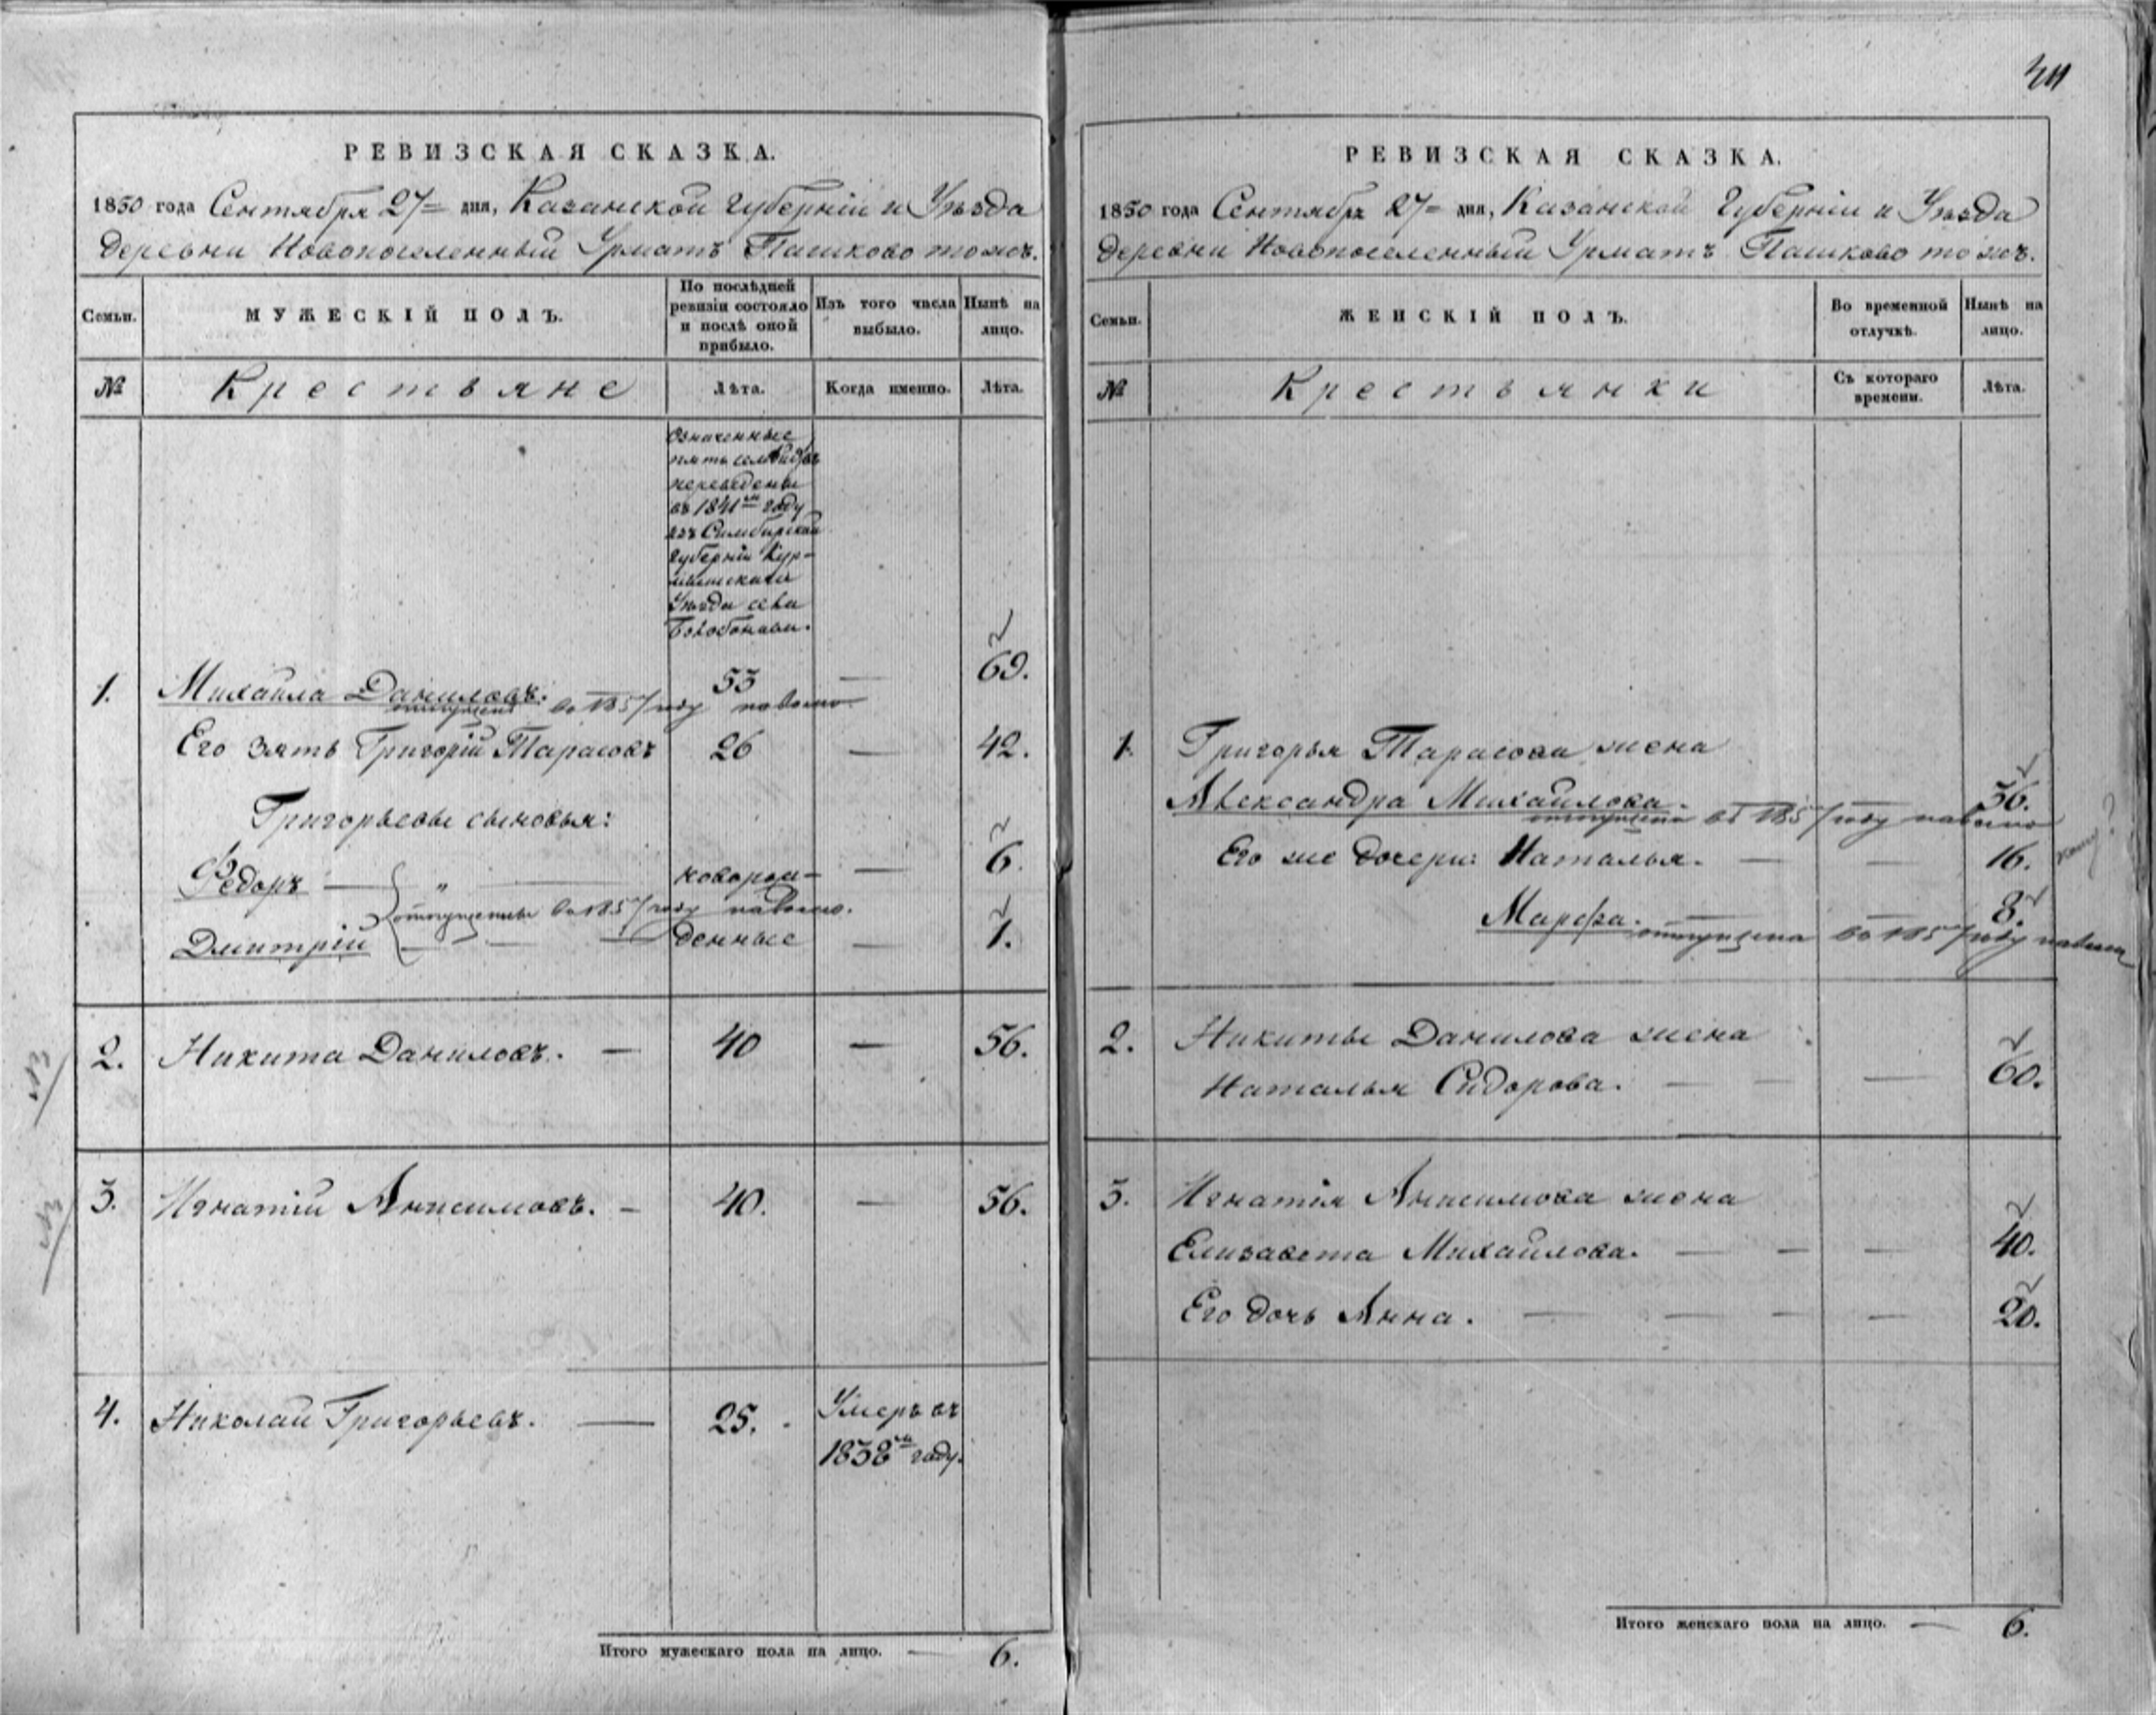 РЕВИЗСКАЯ СКАЗКА.
1850 года Сентября 27 дня, Казанской Губерніи и Уѣзда
деревни Новопоселенный Урматъ Пашково тожъ.
Семьи.
МУЖЕСКІЙ ПОЛЪ.
По послѣдней
ревизіи состояло
и послѣ оной
прибыло.
Изъ того числа
выбыло.
Нынѣ на
лицо.
№
Крестьяне
Лѣта.
Когда именно.
Лѣта.
Означенные
пять
переведены
въ 1841м году
изъ Симбирской
Губерніи Кур-
мышскаго
Уѣзда села
1.
Михайла Даниловъ.
53
—
69.
отпущенъ въ 1857 году на волю
Его зять Григорій Тарасовъ
26
—
42.
Григорьевы сыновья:
Федоръ — „ — новорож- — 6.
отпущенны въ 1857 году на волю.
Дмитрій — денные — 1.
2.
Никита Даниловъ. —
40
—
56.
3.
Игнатій Анисимовъ. —
40.
—
56.
4.
Николай Григорьевъ. —
25.
Умеръ въ
1838м году.
Итого мужескаго пола на лицо. — 6.
411
РЕВИЗСКАЯ СКАЗКА.
1850 года Сентября 27 дня, Казанской Губерніи и Уѣзда
деревни Новопоселенный Урматъ Пашково тожъ.
Семьи.
ЖЕНСКІЙ ПОЛЪ.
Во временной
отлучкѣ.
Нынѣ на
лицо.
№
Крестьянки
Съ котораго
времени.
Лѣта.
1.
Григорья Тарасова жена
Александра Михайлова. — 36.
отпущена въ 1857 году на волю
Его же дочери: Наталья. — — 16.
Марфа. — — 8.
отпущена въ 1857 году на волю
2.
Никиты Данилова жена
Наталья Сидорова. — — — 60.
3.
Игнатія Анисимова жена
Елизавета Михайлова. — — — 40.
Его дочь Анна. — — — — 20.
Итого женскаго пола на лицо. — 6.